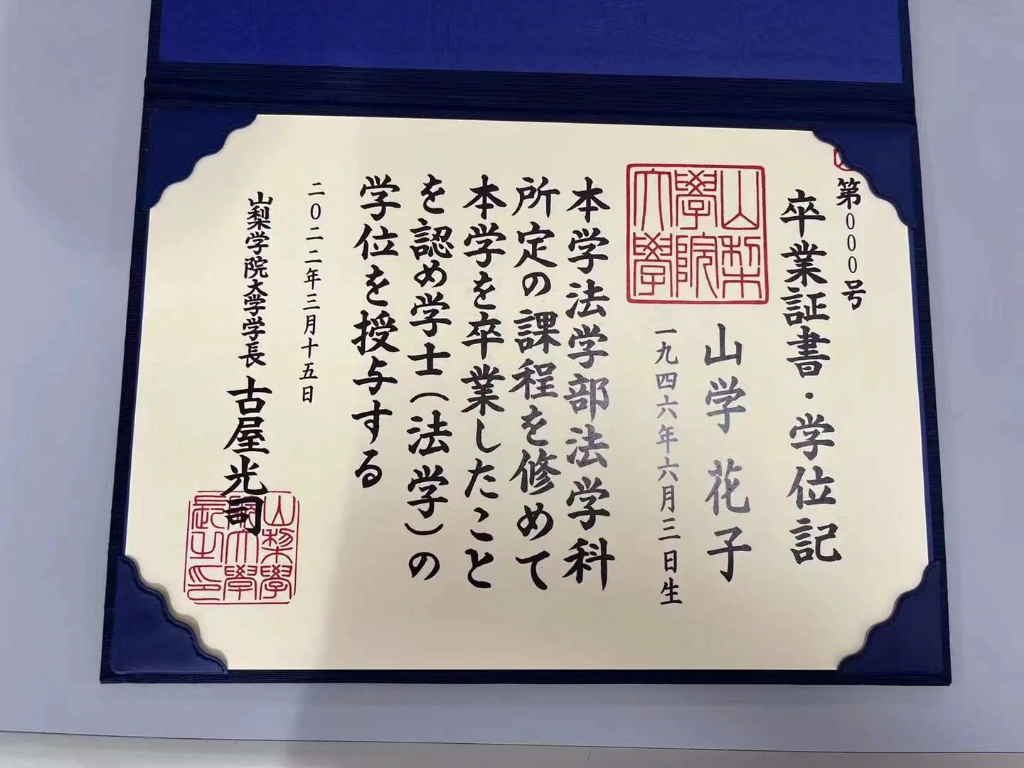 第000号
卒業証書・学位記
山梨
學院
大學
山学 花子
一九四六年六月三日生
本学法学部法学科
所定の課程を修めて
本学を卒業したこと
を認め学士(法学)の
学位を授与する
二〇二二年三月十五日
山梨学院大学学長 古屋光司
山梨學
院大學
長之印